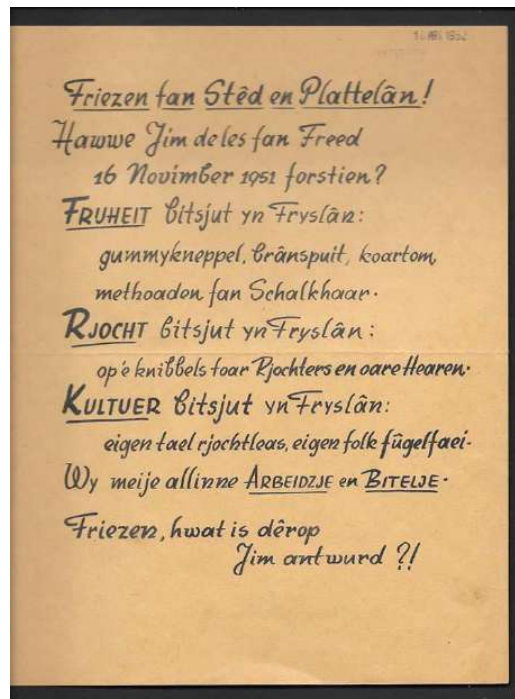 Friezen fan Stêd en Plattelân!
Hawwe Jim de les fan Freed
16 Novimber 1951 forstien?
FRUHEIT bitsjut yn Fryslân:
gummykneppel, brânspuit, koartom,
methoaden fan Schalkhaar.
RJOCHT bitsjut yn Fryslân:
op'e knibbels foar Rjochters en oare Hearen.
KULTUER bitsjut yn Fryslân:
eigen tael rjochtleas, eigen folk fûgelfaei.
Wy meije allinne ARBEIDZJE en BITELJE.
Friezen, hwat is dêrop
Jim antwurd ?!